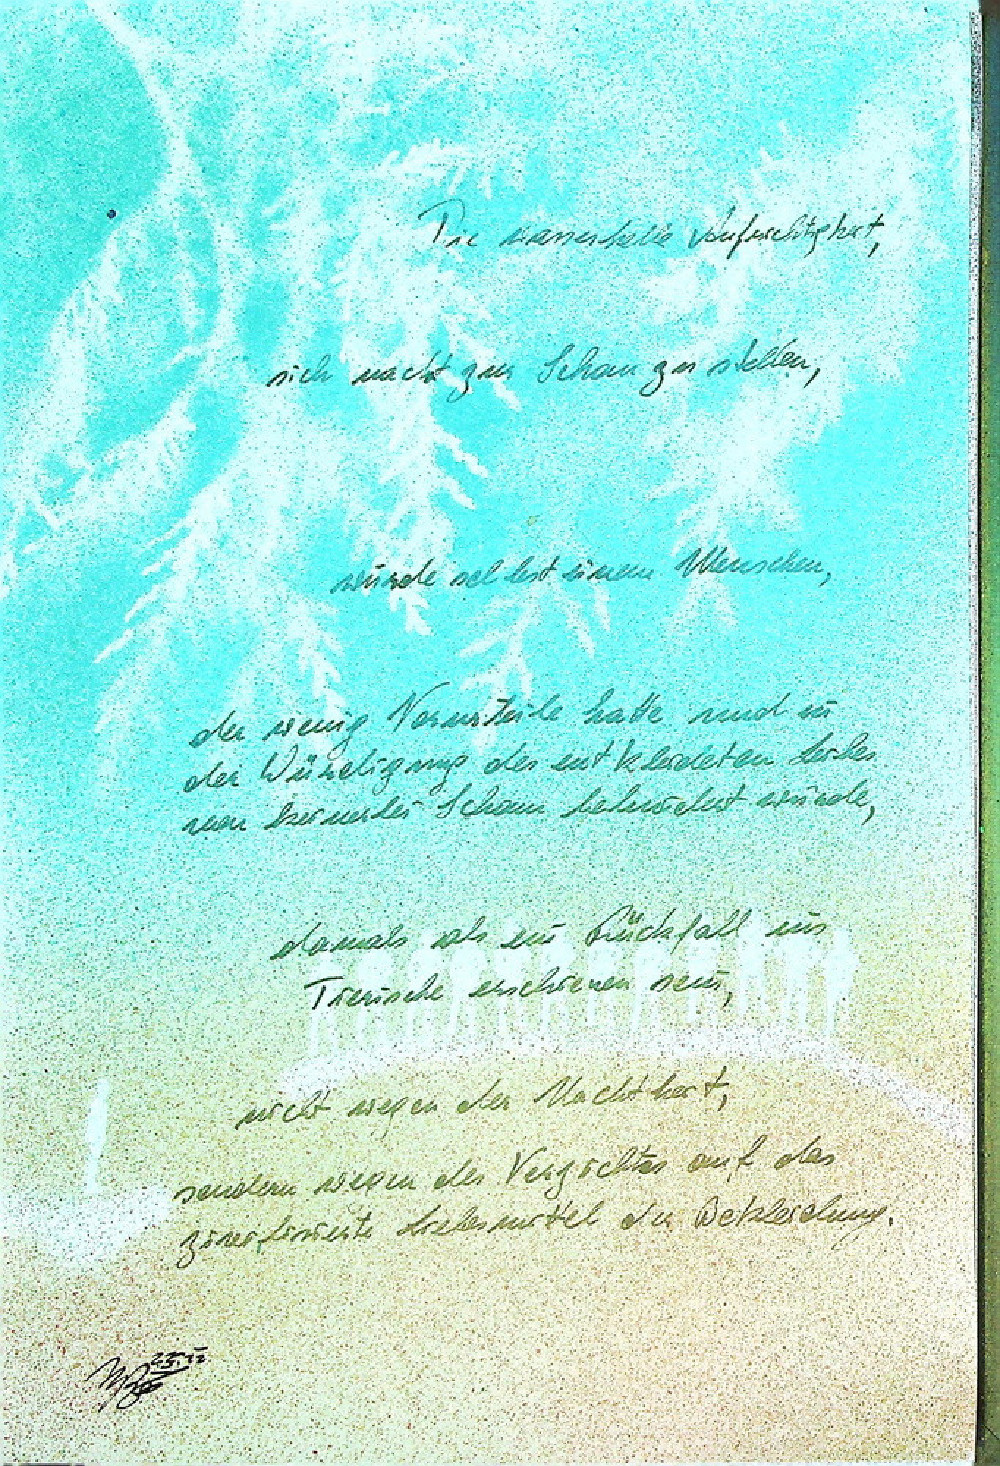 Die wasserhelle Aufrichtigkeit,
sich nackt zur Schau zu stellen,
würde selbst einem Menschen,
der wenig Vorurteile hatte und in
der Würdigung des entkleideten Leibes
von keinerlei Scham behindert würde,
damals als ein Rückfall ins
Tierische erschienen sein,
nicht wegen der Nacktheit,
sondern wegen des Verzichtes auf das
zivilisierte Liebesmittel der Bekleidung.